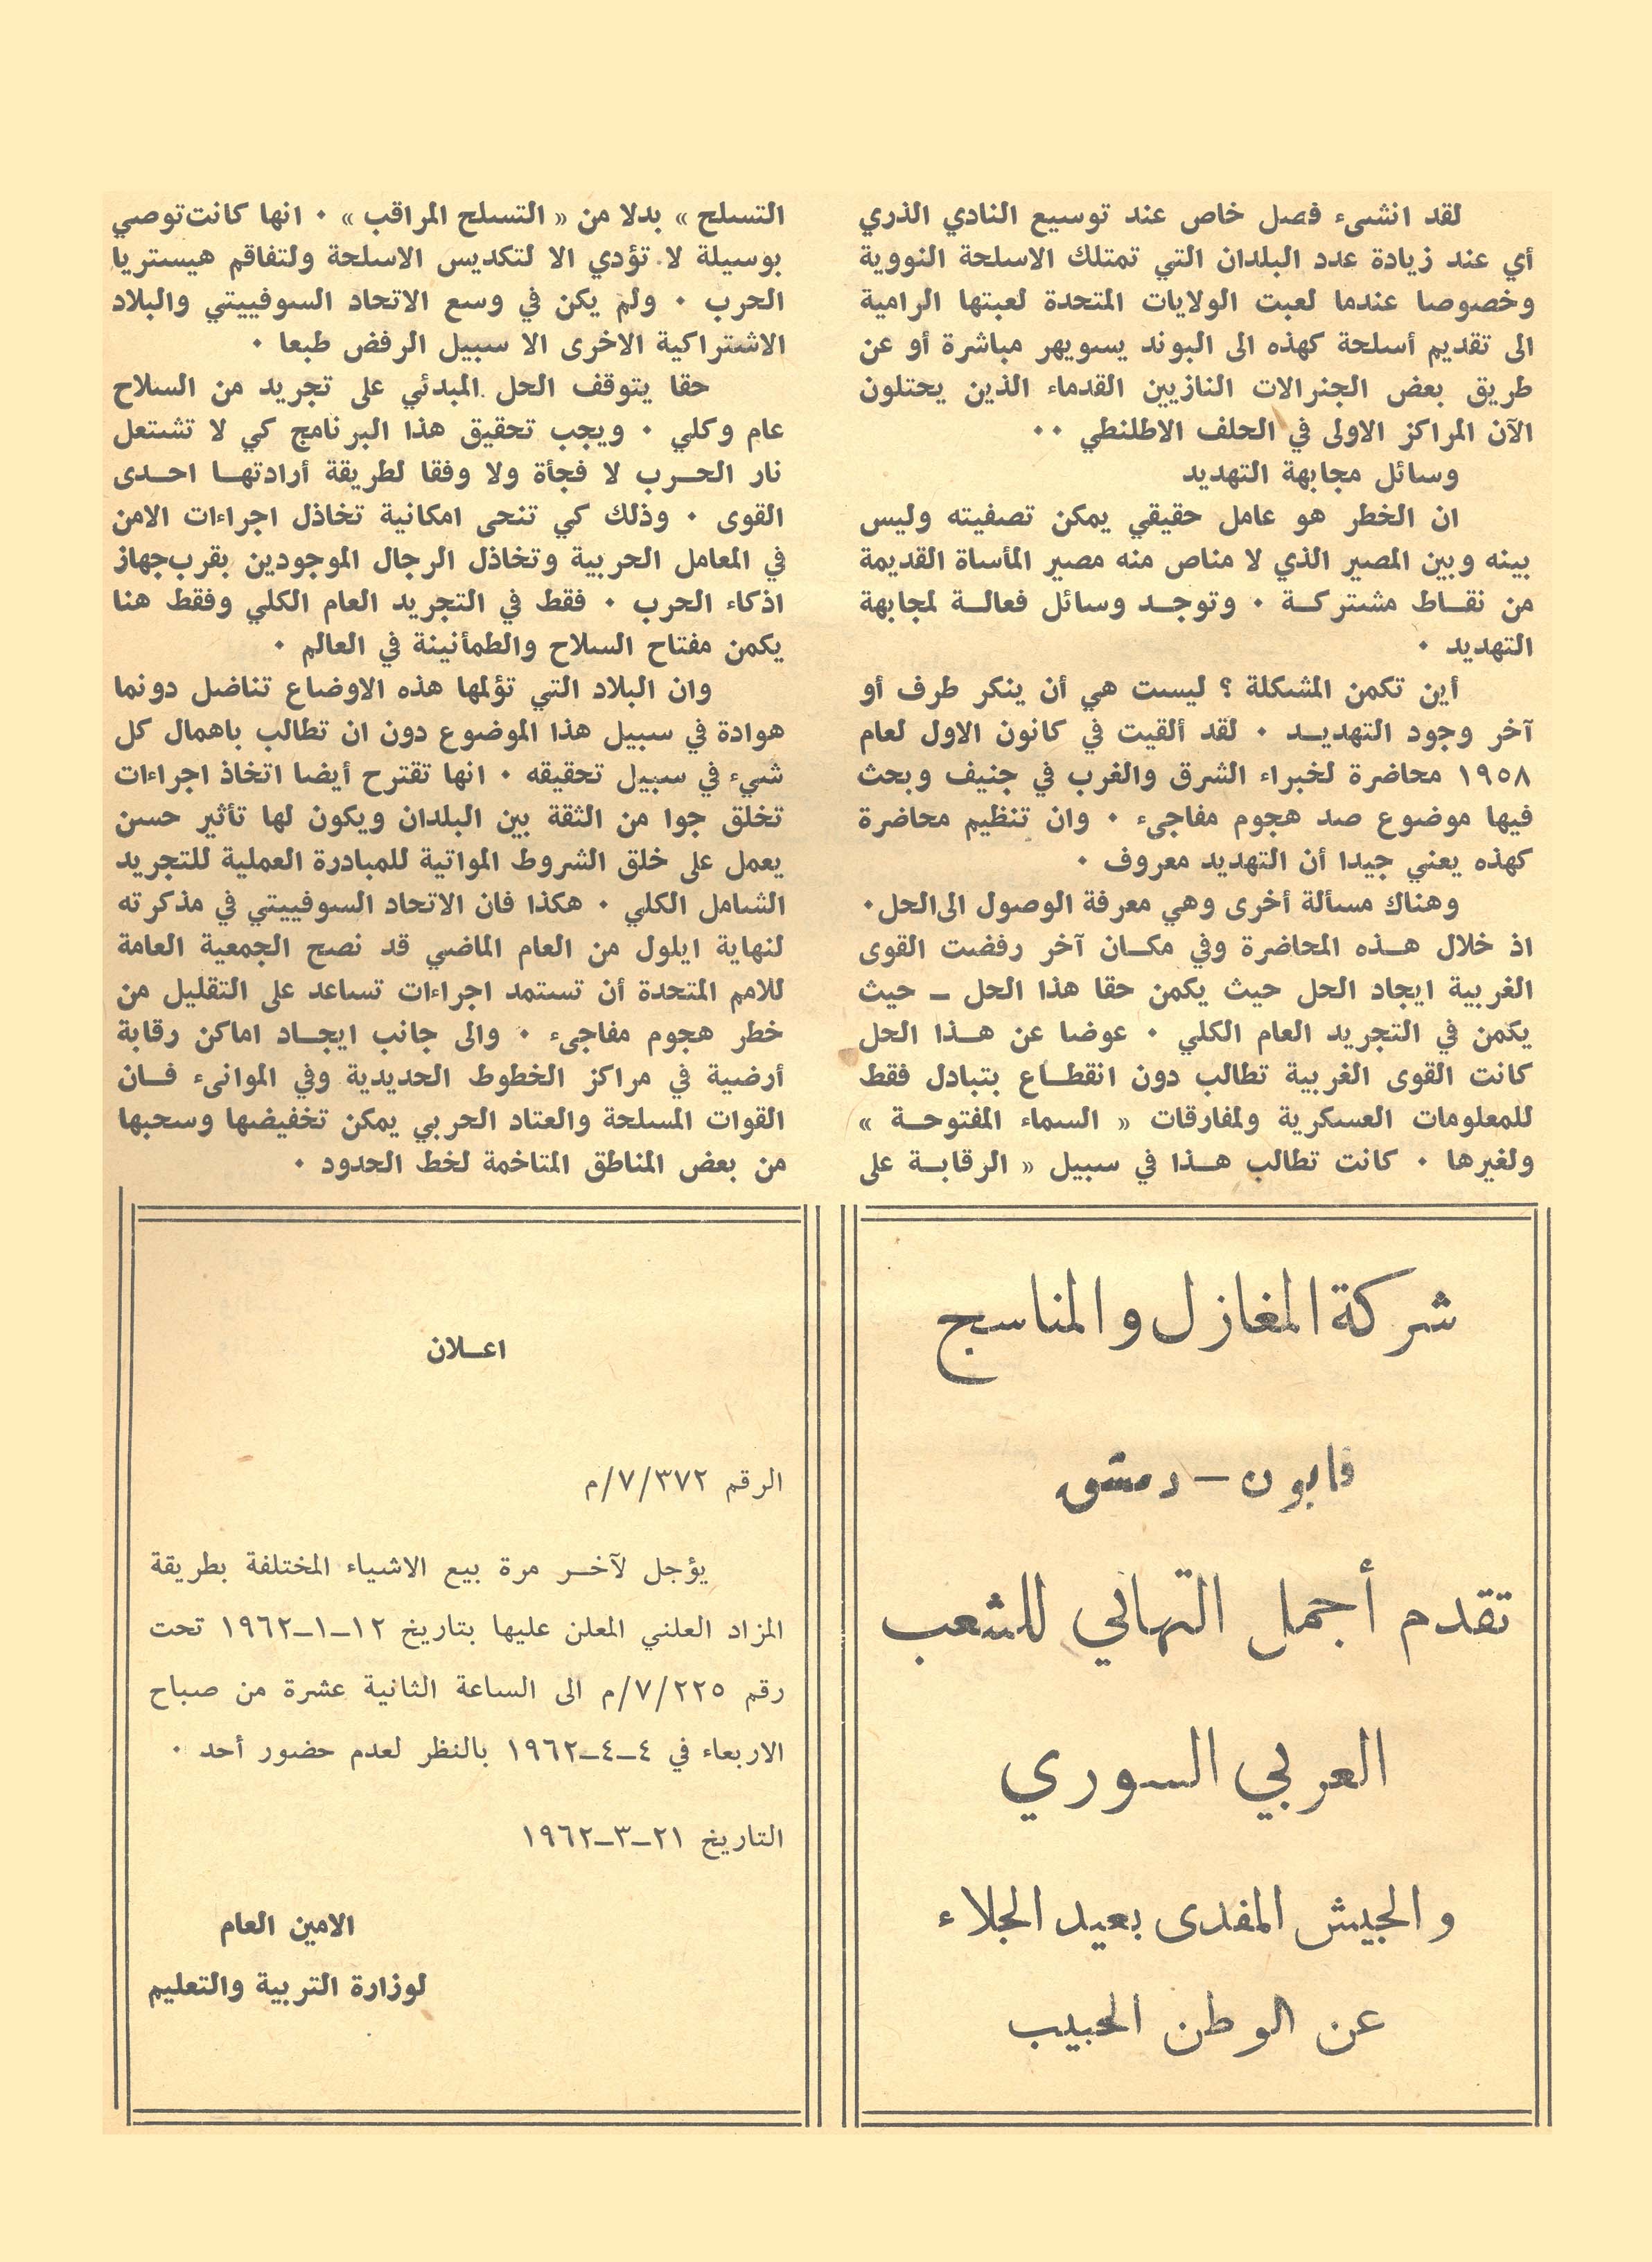 لقد انشىء فصل خاص عند توسيع النادي الذري
أي عند زيادة عدد البلدان التي تمتلك الاسلحة النووية
وخصوصا عندما لعبت الولايات المتحدة لعبتها الرامية
الى تقديم أسلحة كهذه الى البوند يسويهر مباشرة أو عن
طريق بعض الجنرالات النازيين القدماء الذين يحتلون
الآن المراكز الاولى في الحلف الاطلنطي ٠٠
وسائل مجابهة التهديد
ان الخطر هو عامل حقيقي يمكن تصفيته وليس
بينه وبين المصير الذي لا مناص منه مصير المأساة القديمة
من نقـاط مشتركـة ٠ وتوجـد وسائل فعالـة لمجابهة
التهديد ٠
أين تكمن المشكلة ؟ ليست هي أن ينكر طرف أو
آخر وجود التهديـد ٠ لقد ألقيت في كانون الاول لعام
١٩٥٨ محاضرة لخبراء الشرق والغرب في جنيف وبحث
فيها موضوع صد هجوم مفاجىء ٠ وان تنظيم محاضرة
كهذه يعني جيدا أن التهديد معروف ٠
وهناك مسألة أخرى وهي معرفة الوصول الى الحل٠
اذ خلال هـذه المحاضرة وفي مكـان آخر رفضت القوى
الغربية ايجاد الحل حيث يكمن حقا هذا الحل ــ حيث
يكمن في التجريد العام الكلي ٠ عوضا عن هـذا الحل
كانت القوى الغربية تطالب دون انقطـاع بتبادل فقط
للمعلومات العسكرية ولمفارقات « السماء المفتوحـة »
ولغيرها ٠ كانت تطالب هـذا في سبيل « الرقابـة على
التسلح » بدلا من « التسلح المراقب » ٠ انها كانت توصي
بوسيلة لا تؤدي الا لتكديس الاسلحة ولتفاقم هيستريا
الحرب ٠ ولم يكن في وسع الاتحاد السوفييتي والبلاد
الاشتراكية الاخرى الا سبيل الرفض طبعا ٠
حقا يتوقف الحل المبدئي على تجريد من السلاح
عام وكلي ٠ ويجب تحقيق هذا البرنامج كي لا تشتعل
نار الحـرب لا فجأة ولا وفقا لطريقة أرادتهـا احـدى
القوى ٠ وذلك كي تنحى امكانية تخاذل اجراءات الامن
في المعامل الحربية وتخاذل الرجال الموجودين بقرب جهاز
اذكاء الحرب ٠ فقط في التجريد العام الكلي وفقط هنا
يكمن مفتاح السلاح والطمأنينة في العالم ٠
وان البلاد التي تؤلمها هذه الاوضاع تناضل دونما
هوادة في سبيل هذا الموضوع دون ان تطالب باهمال كل
شيء في سبيل تحقيقه ٠ انها تقترح أيضا اتخاذ اجراءات
تخلق جوا من الثقة بين البلدان ويكون لها تأثير حسن
يعمل على خلق الشروط المواتية للمبادرة العملية للتجريد
الشامل الكلي ٠ هكذا فان الاتحاد السوفييتي في مذكرته
لنهاية ايلول من العام الماضي قد نصح الجمعية العامة
للامم المتحدة أن تستمد اجراءات تساعد على التقليل من
خطر هجوم مفاجىء ٠ والى جانب ايجـاد اماكن رقابة
أرضية في مراكز الخطوط الحديدية وفي الموانىء فـان
القوات المسلحة والعتاد الحربي يمكن تخفيضها وسحبها
من بعض المناطق المتاخمة لخط الحدود ٠
شركة المغازل والمناسج
قابون – دمشق
تقدم أجمل التهاني للشعب
العربي السوري
والجيش المفدى بعيد الجلاء
عن الوطن الحبيب
اعـلان
الرقم ٣٧٢/٧/م
يؤجل لآخـر مرة بيع الاشياء المختلفة بطريقة
المزاد العلني المعلن عليها بتاريخ ١٢ــ١ــ١٩٦٢ تحت
رقم ٢٢٥/٧/م الى الساعة الثانية عشرة من صباح
الاربعاء في ٤ــ٤ــ١٩٦٢ بالنظر لعدم حضور أحد ٠
التاريخ ٢١ــ٣ــ١٩٦٢
الامين العام
لوزارة التربية والتعليم